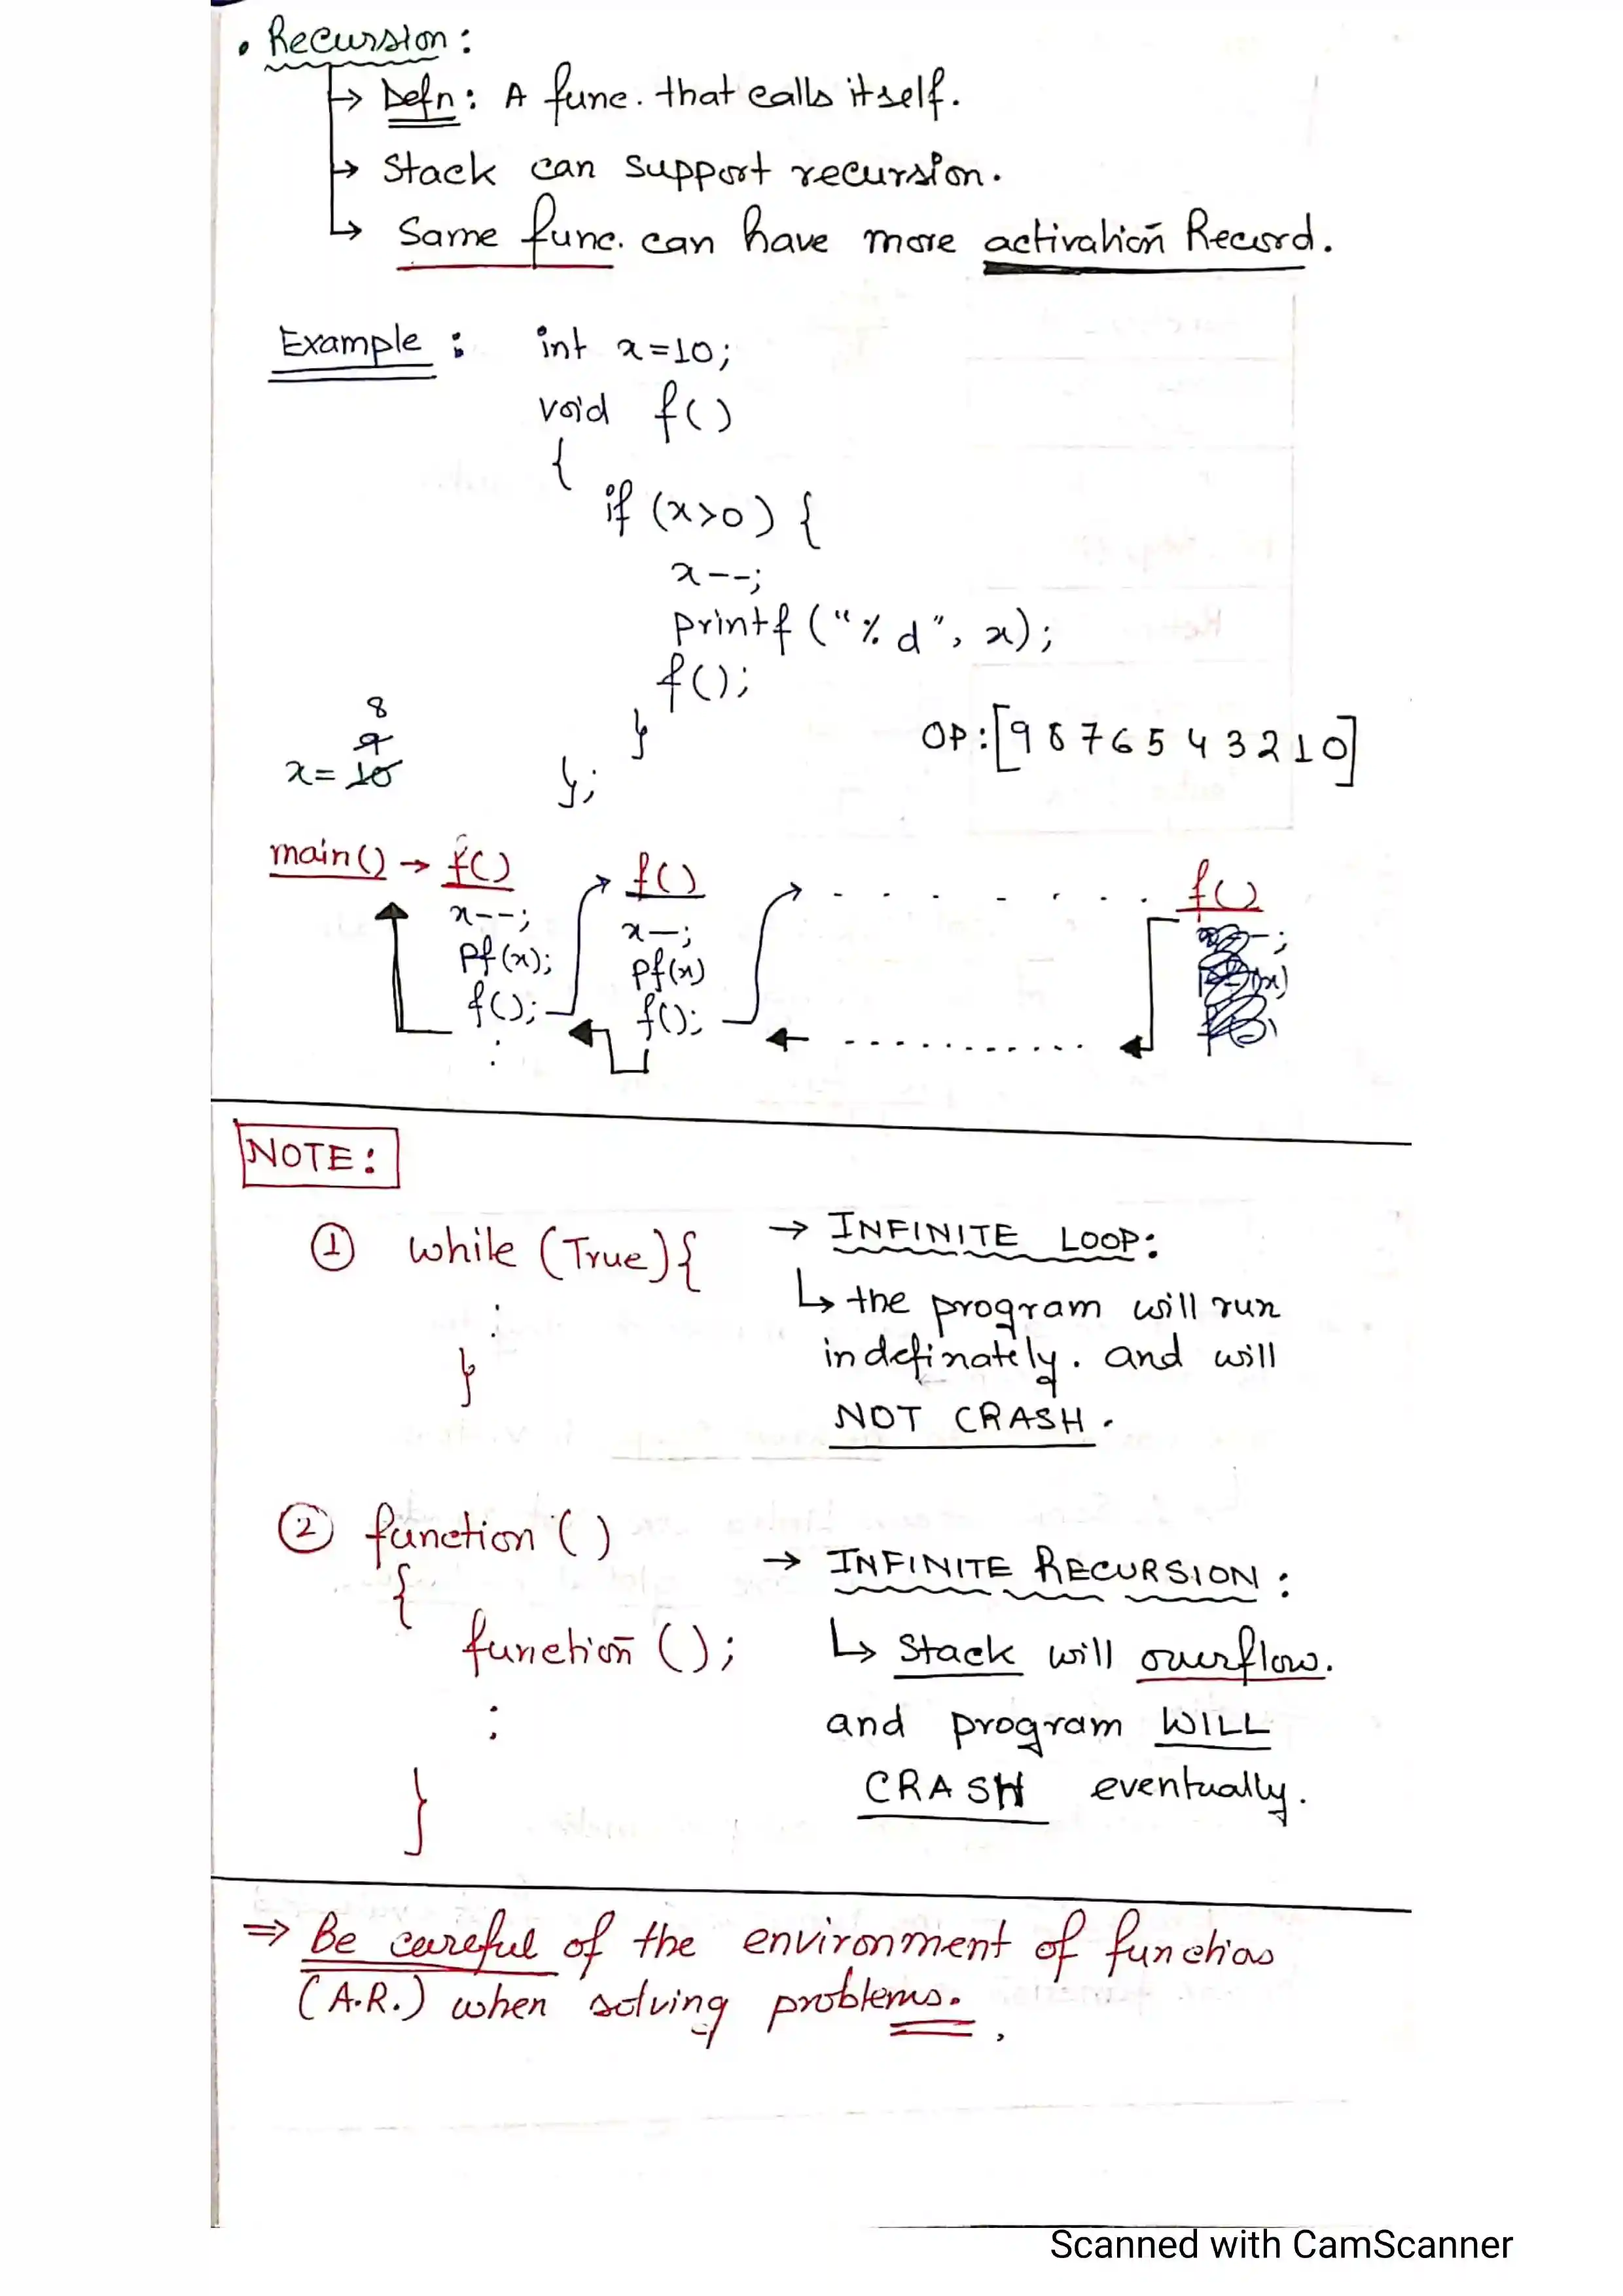 • Recursion :
→ Defn : A func. that calls itself.
→ Stack can support recursion.
↳ Same func. can have more activation Record.
Example : int x=10;
void f()
{
if (x>0) {
x--;
printf ("% d", x);
f();
}
OP:[9 8 7 6 5 4 3 2 1 0]
};
8
9
x= 10
main() → f() f() . . . . . . . f()
x--; x--;
pf(x); pf(x)
f(); f();
:
NOTE :
① while (True) {
:
}
→ INFINITE LOOP:
↳ the program will run
indefinately. and will
NOT CRASH.
② function ()
{
function ();
:
}
→ INFINITE RECURSION :
↳ Stack will overflow.
and program WILL
CRASH eventually.
⇒ Be careful of the environment of function
(A.R.) when solving problems.
Scanned with CamScanner